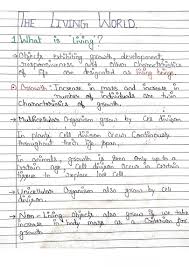 The Living World.
1. What is living?
→ Objects exhibiting growth, development,
responsiveness and other characteristics
of life are designated as living beings.
⊙ Growth: Increase in mass and increase in
number of individuals are twin
characteristics of growth.
→ Multicellular Organism grow by cell division.
In plants, Cell division occurs Continuously
throughout their life span.
In animals, growth is seen only up to a
certain age. Cell division occurs in certain
tissues to replace lost cell.
→ Unicellular Organism also grow by cell
division.
→ Non-Living objects also grow if we take
increase in body mass as a criterion for
growth.